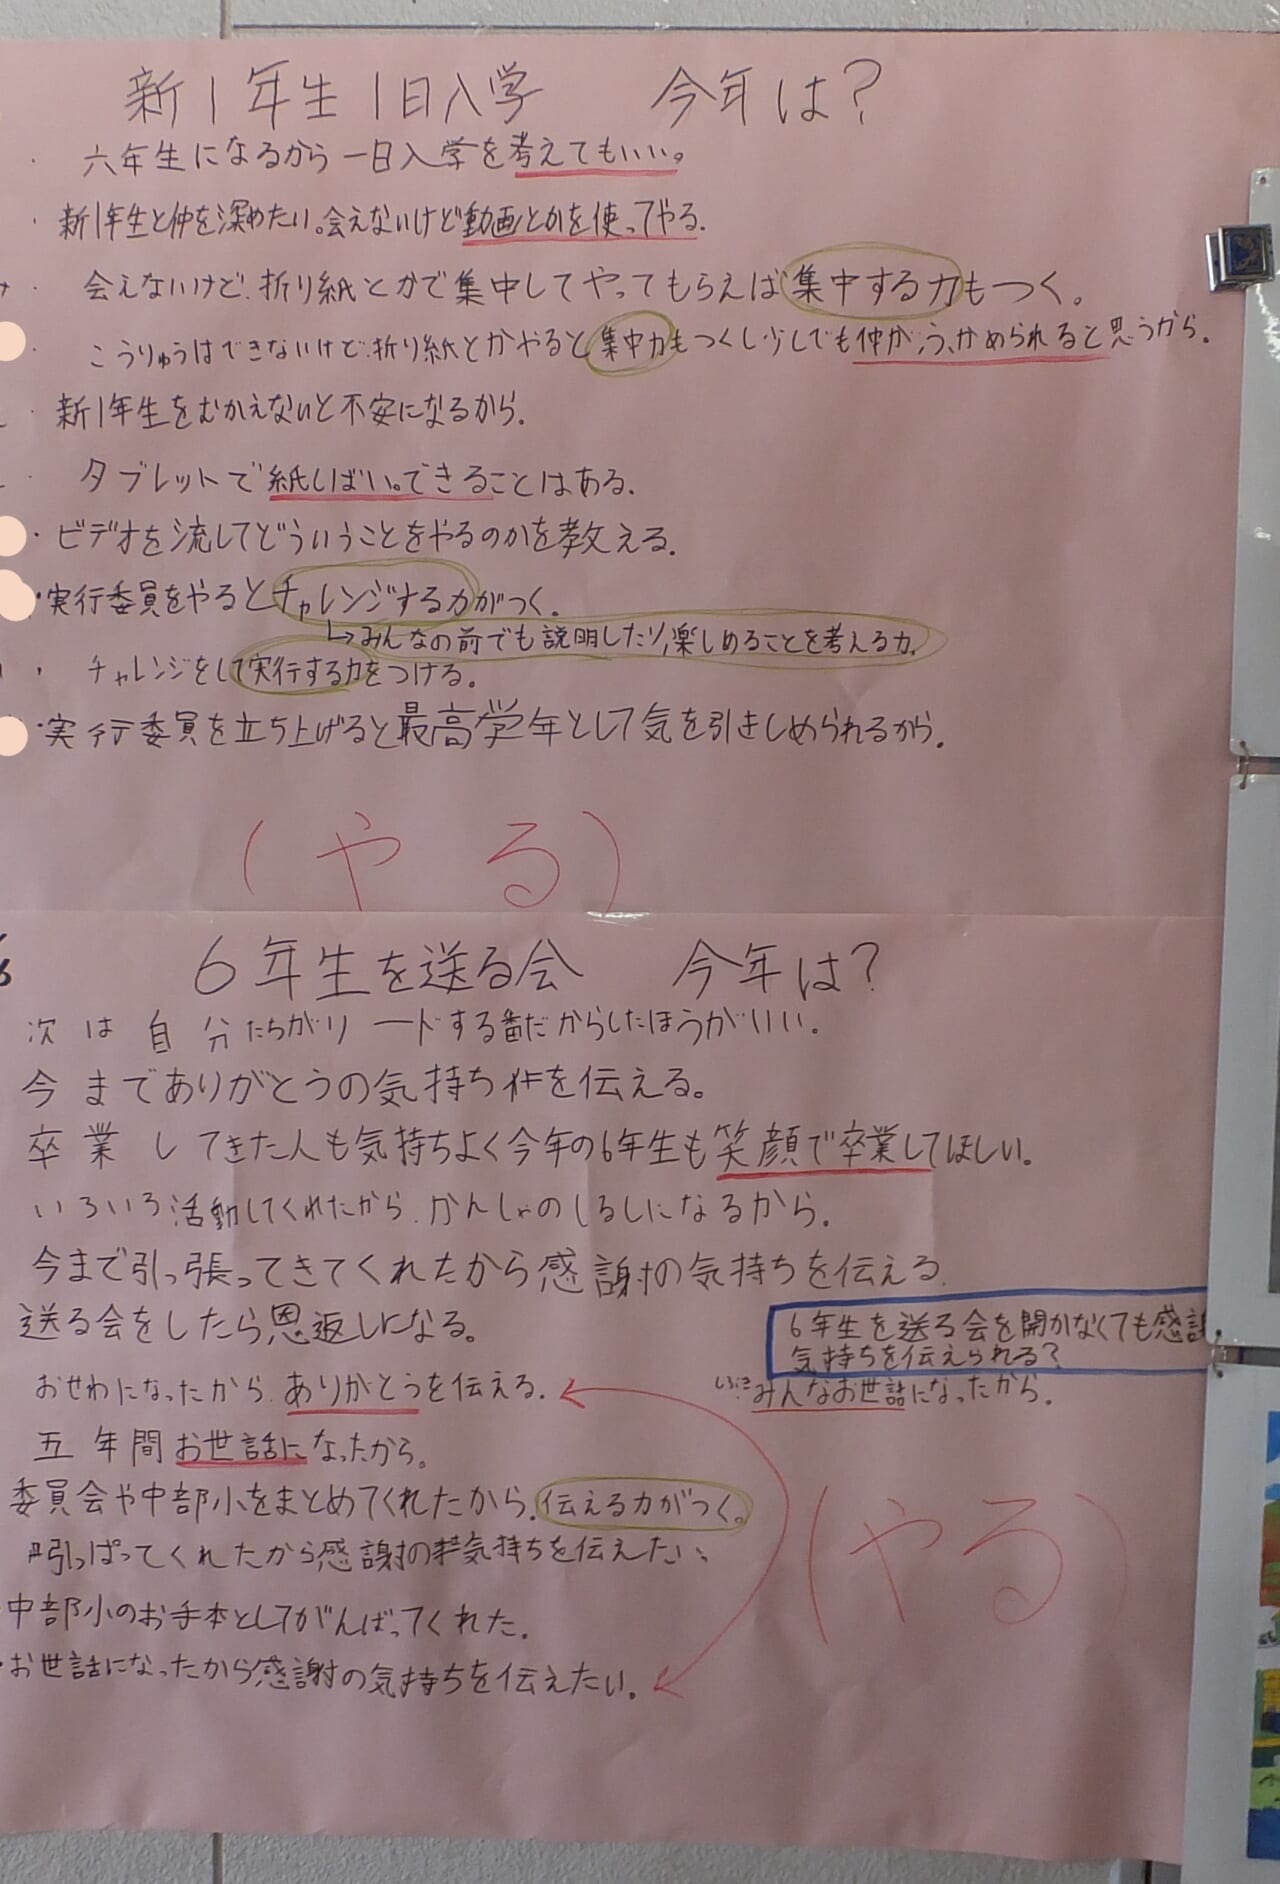 新1年生1日入学 今年は?
・六年生になるから一日入学を考えてもいい。
・新1年生と仲を深めたい。会えないけど動画とかを使ってやる.
・会えないけど、折り紙とかで集中してやってもらえば集中する力もつく。
・こうりゅうはできないけど、折り紙とかやると集中力もつくし少しでも仲がふかめられると思うから.
・新1年生をむかえないと不安になるから.
・タブレットで紙しばい。できることはある.
・ビデオを流してどういうことをやるのかを教える.
・実行委員をやるとチャレンジする力がつく.
↳みんなの前でも説明したり、楽しめることを考える力.
・チャレンジをして実行する力をつける.
・実行委員を立ち上げると最高学年として気を引きしめられるから.
(やる)
6年生を送る会 今年は?
次は自分たちがリードする番だからしたほうがいい.
今までありがとうの気持ちを伝える。
卒業してきた人も気持ちよく今年の6年生も笑顔で卒業してほしい.
いろいろ活動してくれたから、かんしゃのしるしになるから.
今まで引っ張ってきてくれたから感謝の気持ちを伝える.
送る会をしたら恩返しになる。
6年生を送る会を開かなくても感謝
気持ちを伝えられる?
おせわになったから、ありがとうを伝える.
みんなお世話になったから.
五年間お世話になったから。
委員会や中部小をまとめてくれたから.伝える力がつく。
引っぱってくれたから感謝の気持ちを伝えたい、
・中部小のお手本としてがんばってくれた.
・お世話になったから感謝の気持ちを伝えたい.
(やる)